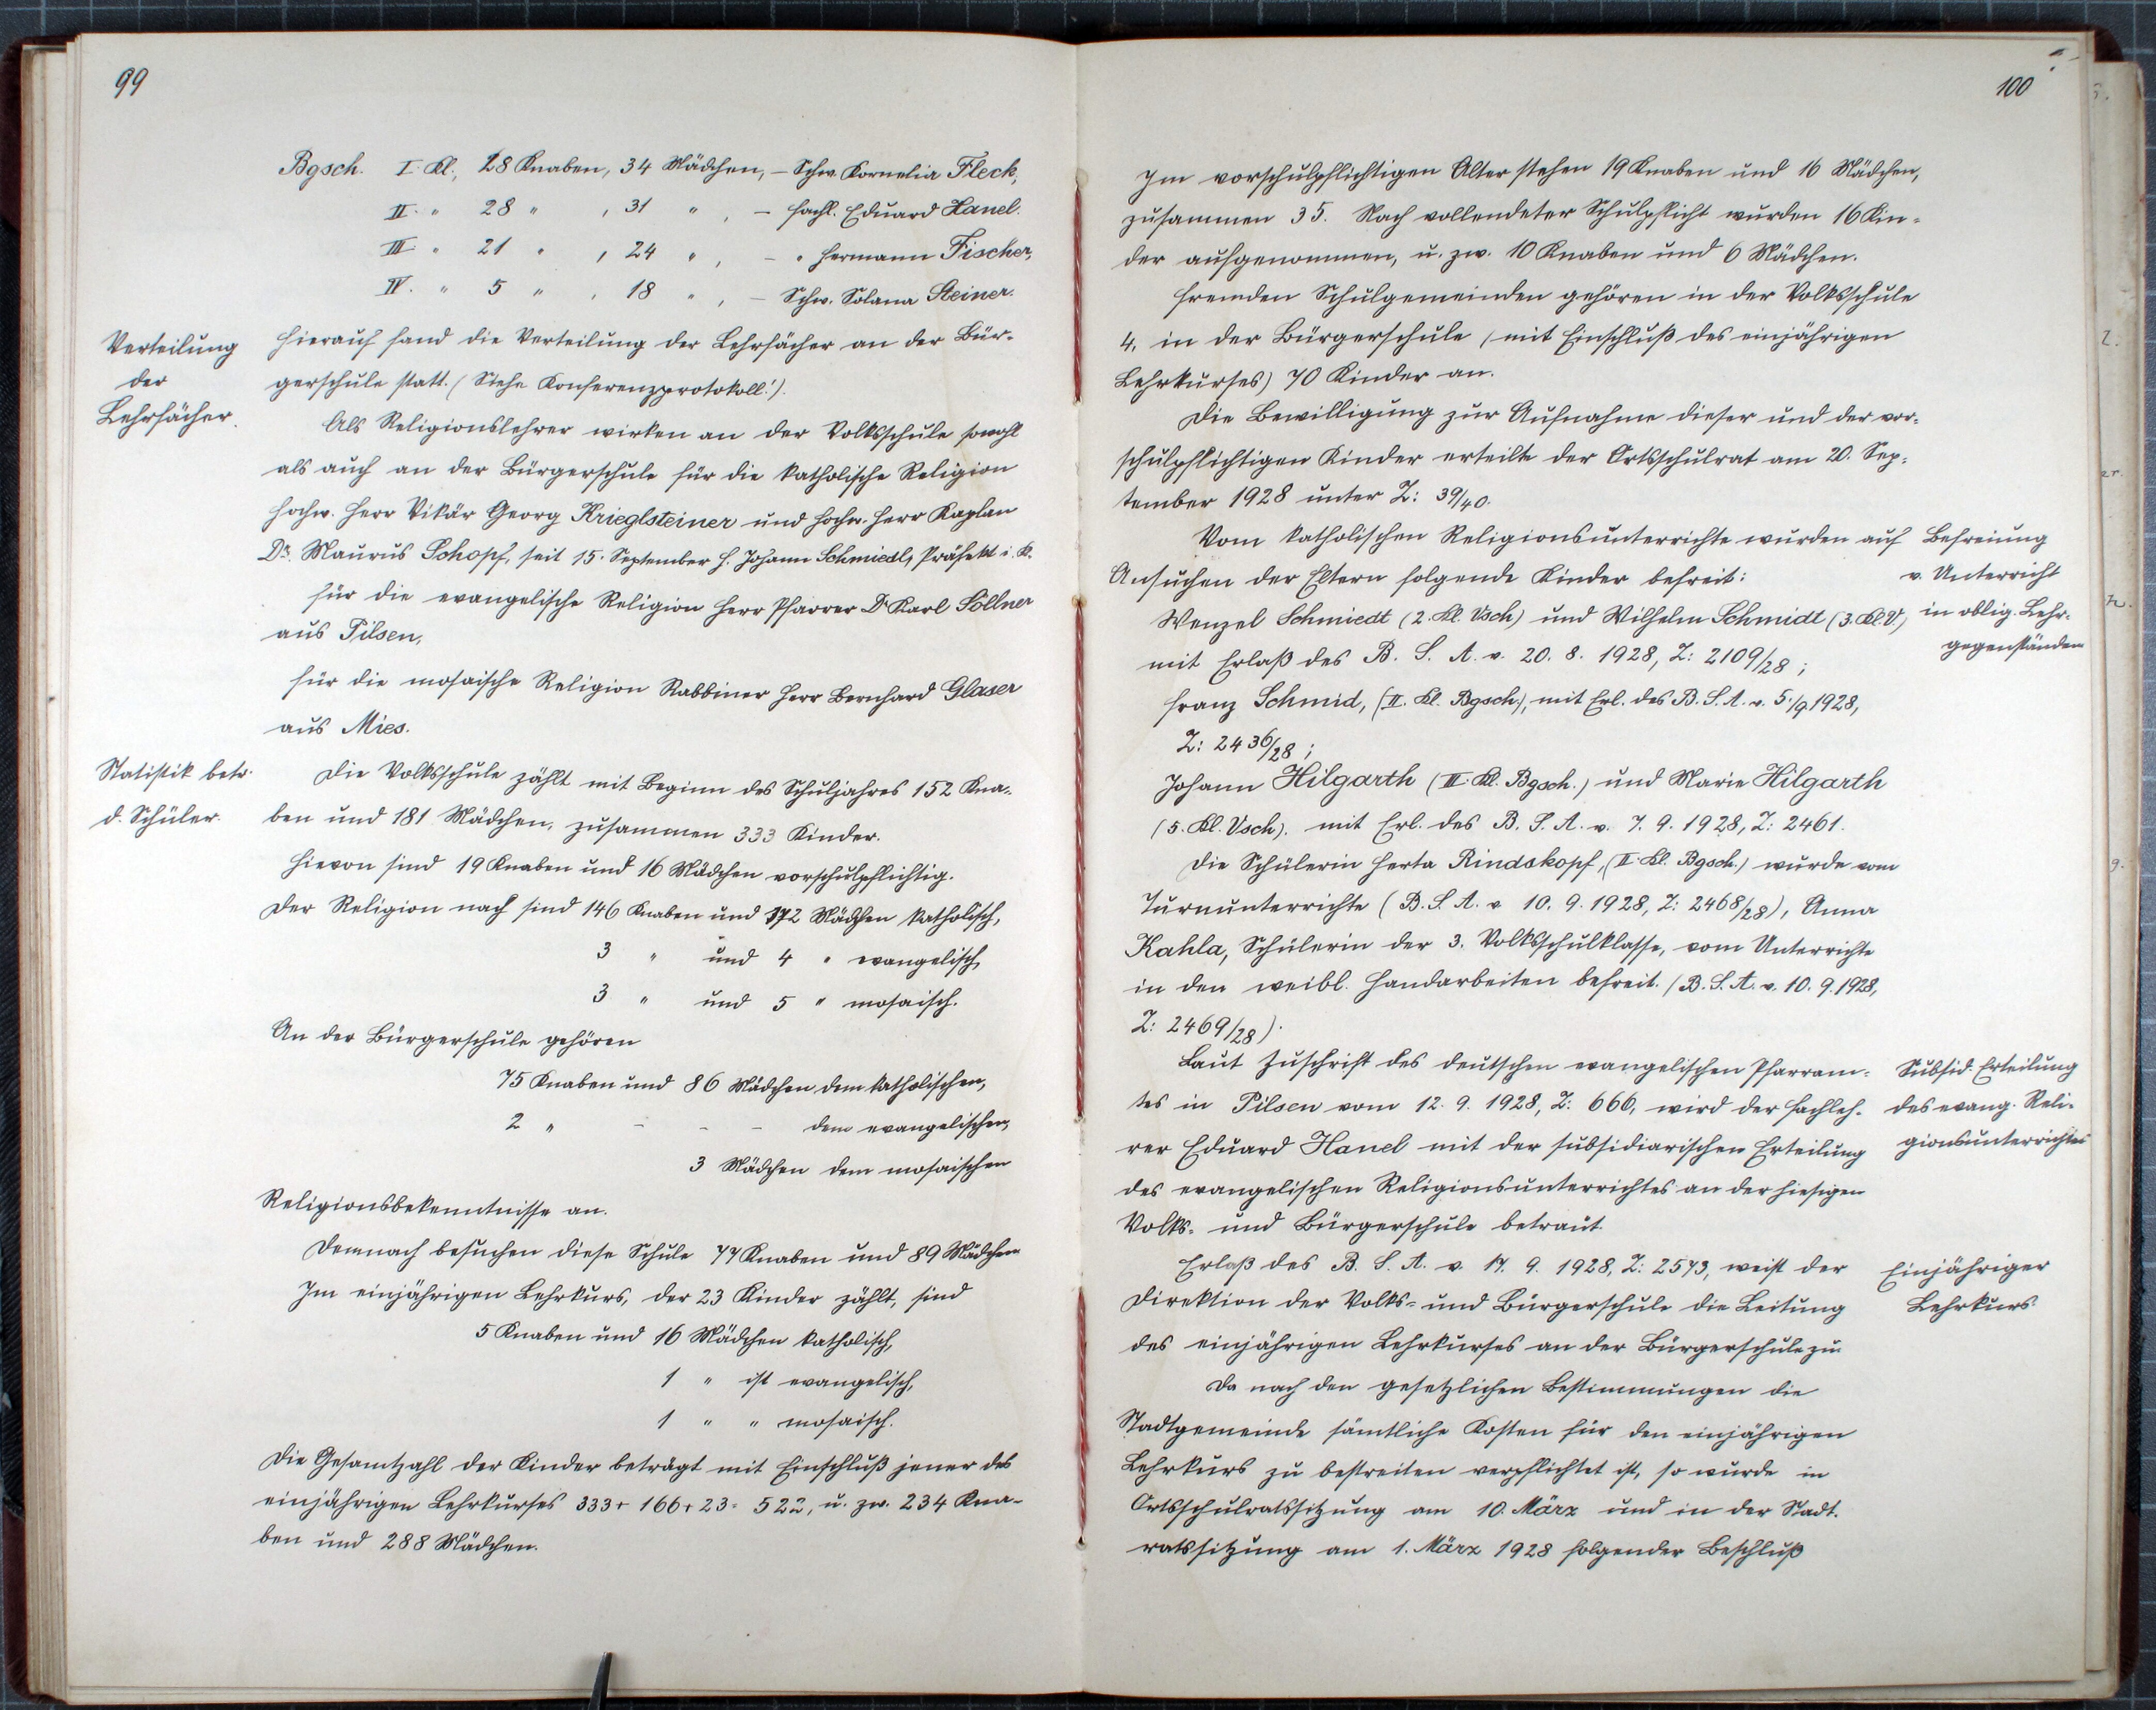 99
Bgsch. I. Kl., 28 Knaben, 34 Mädchen, – Schw. Kornelia Fleck,
II. " 28 " , 31 " , – Fachl. Eduard Hanel.
III. " 21 " , 24 " , – " Hermann Fischer,
IV. " 5 " , 18 " , – Schw. Solana Steiner.
Verteilung
der
Lehrfächer.
Hierauf fand die Verteilung der Lehrfächer an der Bür-
gerschule statt. (Siehe Konferenzprotokoll!).
Als Religionslehrer wirken an der Volksschule sowohl
als auch an der Bürgerschule für die katholische Religion
hochw. Herr Vikär Georg Krieglsteiner und hochw. Herr Kaplan
Dr. Maurus Schopf, seit 15. September H. Johann Schmiedl, Präfekt i. K.
für die evangelische Religion Herr Pfarrer Dr Karl Söllner
aus Pilsen,
für die mosaische Religion Rabbiner Herr Bernhard Glaser
aus Mies.
Statistik betr.
d. Schüler.
Die Volksschule zählt mit Beginn des Schuljahres 152 Kna-
ben und 181 Mädchen, zusammen 333 Kinder.
Hievon sind 19 Knaben und 16 Mädchen vorschulpflichtig.
Der Religion nach sind 146 Knaben und 172 Mädchen katholisch,
3 " und 4 " evangelisch,
3 " und 5 " mosaisch.
An der Bürgerschule gehören
75 Knaben und 86 Mädchen dem katholischen,
2 " – – – dem evangelischen,
3 Mädchen dem mosaischen
Religionsbekenntnisse an.
Demnach besuchen diese Schule 77 Knaben und 89 Mädchen.
Im einjährigen Lehrkurs, der 23 Kinder zählt, sind
5 Knaben und 16 Mädchen katholisch,
1 " ist evangelisch,
1 " " mosaisch.
Die Gesamtzahl der Kinder beträgt mit Einschluß jener des
einjährigen Lehrkurses 333 + 166 + 23 = 522, u. zw. 234 Kna-
ben und 288 Mädchen.
100
Im vorschulpflichtigen Alter stehen 19 Knaben und 16 Mädchen,
zusammen 35. Nach vollendeter Schulpflicht wurden 16 Kin-
der aufgenommen, u. zw. 10 Knaben und 6 Mädchen.
Fremden Schulgemeinden gehören in der Volksschule
4, in der Bürgerschule (mit Einschluß des einjährigen
Lehrkurses) 70 Kinder an.
Die Bewilligung zur Aufnahme dieser und der vor-
schulpflichtigen Kinder erteilte der Ortsschulrat am 20. Sep-
tember 1928 unter Z: 39/40.
Vom katholischen Religionsunterrichte wurden auf
Ansuchen der Eltern folgende Kinder befreit:
Wenzel Schmiedt (2. Kl. Vsch) und Wilhelm Schmidt (3. Kl. V.)
mit Erlaß des B. S. A. v. 20. 8. 1928, Z: 2109/28;
Franz Schmid, (II. Kl. Bgsch.), mit Erl. des B. S. A. v. 5./9. 1928,
Z: 2436/28;
Johann Hilgarth (III. Kl. Bgsch.) und Marie Hilgarth
(5. Kl. Vsch). mit Erl. des B. S. A. v. 7. 9. 1928, Z: 2461.
Befreiung
v. Unterricht
in oblig. Lehr-
gegenständen
Die Schülerin Herta Rindskopf, (II. Kl. Bgsch.) wurde vom
Turnunterrichte (B. S. A. v 10. 9. 1928, Z: 2468/28), Anna
Kahla, Schülerin der 3. Volksschulklasse, vom Unterrichte
in den weibl. Handarbeiten befreit. (B. S. A. v. 10. 9. 1928,
Z: 2469/28).
Laut Zuschrift des deutschen evangelischen Pfarram-
tes in Pilsen vom 12. 9. 1928, Z: 666, wird der Fachleh-
rer Eduard Hanel mit der subsidiarischen Erteilung
des evangelischen Religionsunterrichtes an der hiesigen
Volks- und Bürgerschule betraut.
Subsid. Erteilung
des evang. Reli-
gionsunterrichtes
Erlaß des B. S. A. v. 17. 9. 1928, Z: 2573, weist der
Direktion der Volks- und Bürgerschule die Leitung
des einjährigen Lehrkurses an der Bürgerschule zu.
Einjähriger
Lehrkurs.
Da nach den gesetzlichen Bestimmungen die
Stadtgemeinde sämtliche Kosten für den einjährigen
Lehrkurs zu bestreiten verpflichtet ist, so wurde in
Ortsschulratssitzung am 10. März und in der Stadt-
ratssitzung am 1. März 1928 folgender Beschluß